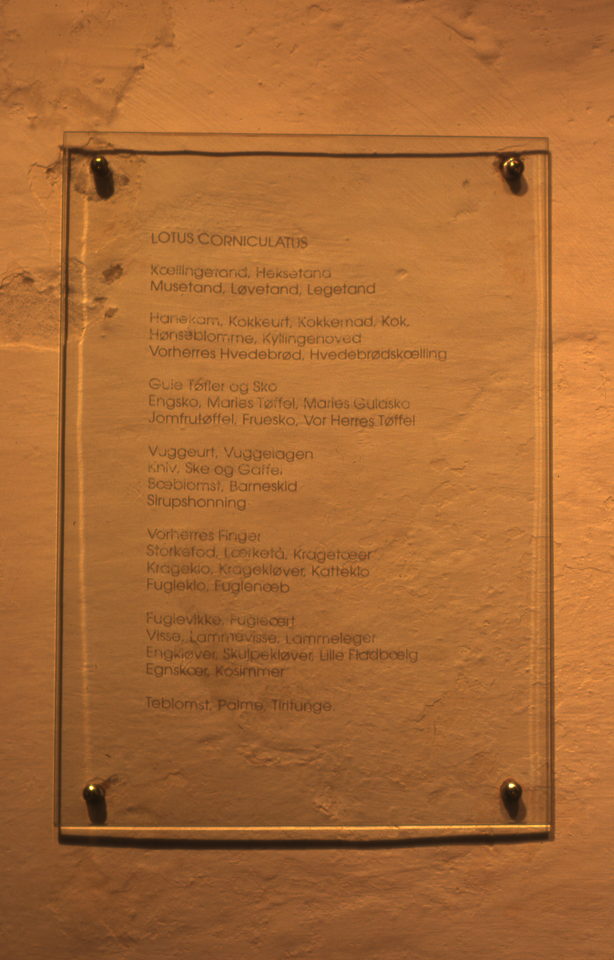 LOTUS CORNICULATUS
Kællingetand, Heksetand
Musetand, Løvetand, Legetand
Hanekam, Kokkeurt, Kokkemad, Kok.
Hønseblomme, Kyllingehoved
Vorherres Hvedebrød, Hvedebrødskælling
Gule Tøfler og Sko
Engsko, Maries Tøffel, Maries Guldsko
Jomfrutøffel, Fruesko, Vor Herres Tøffel
Vuggeurt, Vuggelagen
Kniv, Ske og Gaffel
Sæblomst, Barneskid
Sirupshonning
Vorherres Finger
Storkefod, Lærketå, Kragetæer
Krageklo, Kragekløver, Katteklo
Fugleklo, Fuglenæb
Fuglevikke, Fugleært
Visse, Lammevisse, Lammeleger
Engkløver, Skulpekløver, Lille Fladbælg
Egnskær, Kosimmer
Teblomst, Palme, Tiritunge.